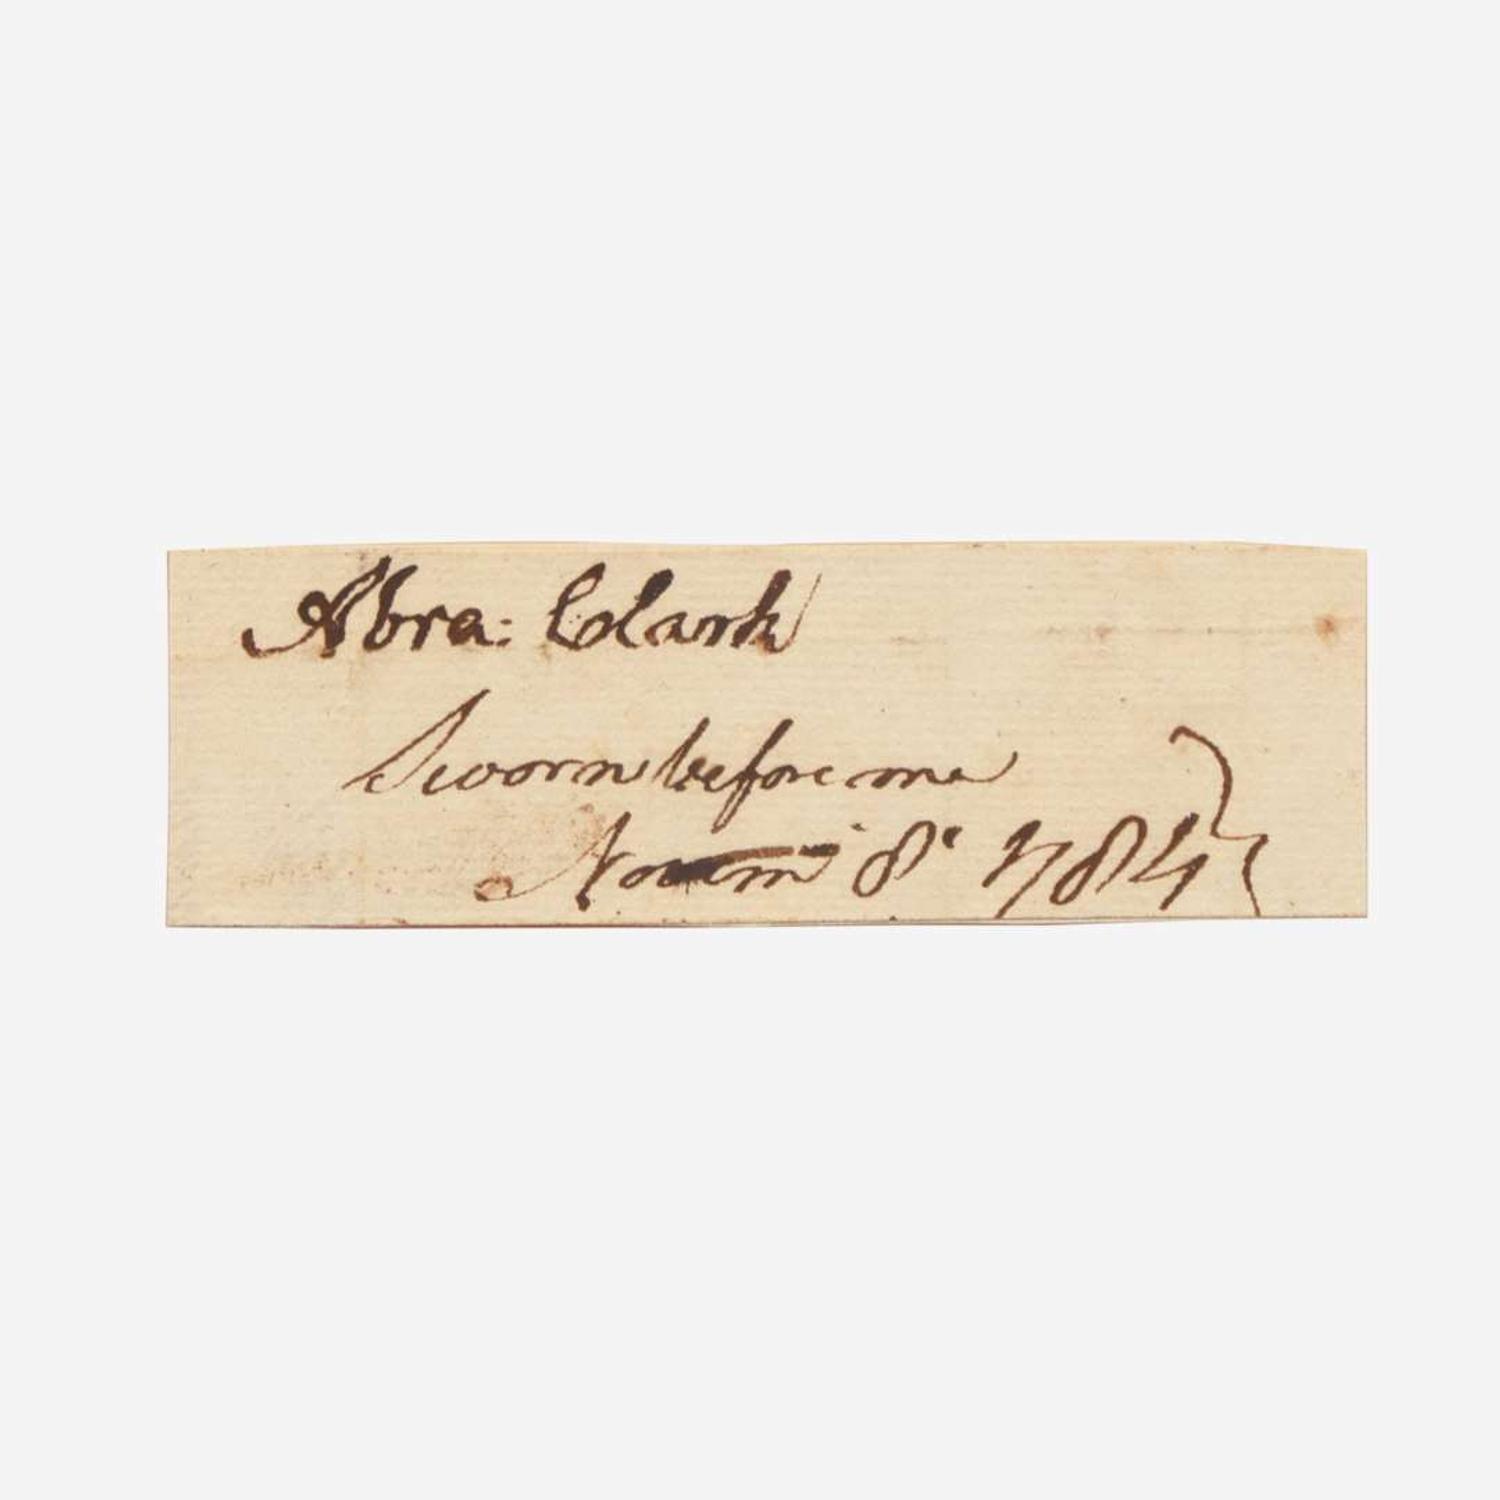 Abra: Clark
Sworn before me
Novem 8. 1784